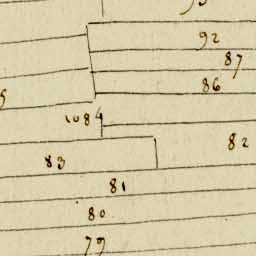 92
87
86
1084
82
83
81
80
79